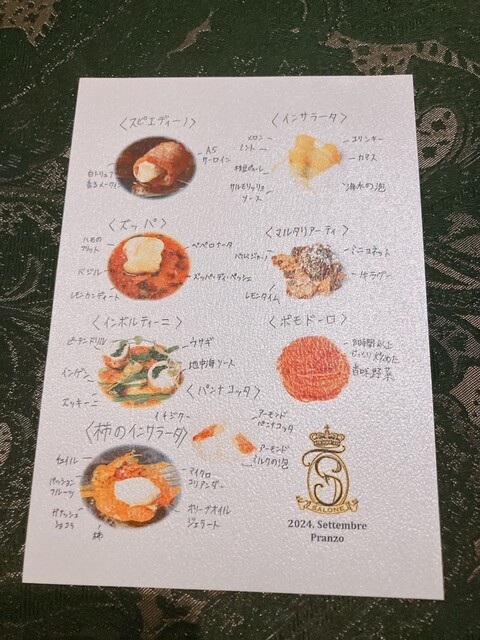 〈スピエディーノ〉
A5
サーロイン
白トリュフ
香るメークイン
〈インサラータ〉
メロン
ミント
サルモリッリョ
ソース
コリンキー
カマス
海水の泡
〈ズッパ〉
ハモの
フリット
バジリコ
レモンカンディート
ペペロナータ
ズッパ・ディ・ペッシェ
〈マルタリアーティ〉
パルミジャーノ
レモンタイム
ミニョネット
仔牛ラグー
〈インボルティーニ〉
ピーテンドリル
インゲン
ズッキーニ
ウサギ
地中海ソース
〈ポモドーロ〉
8時間以上
じっくり炒めた
香味野菜
〈パンナコッタ〉
イチジク
アーモンド
パンナコッタ
アーモンド
ミルクの泡
〈柿のインサラータ〉
チェイル
パッション
フルーツ
ガナッシュ
ショコラ
柿
マイクロ
コリアンダー
オリーブオイル
ジェラート
SALONE
2024, Settembre
Pranzo